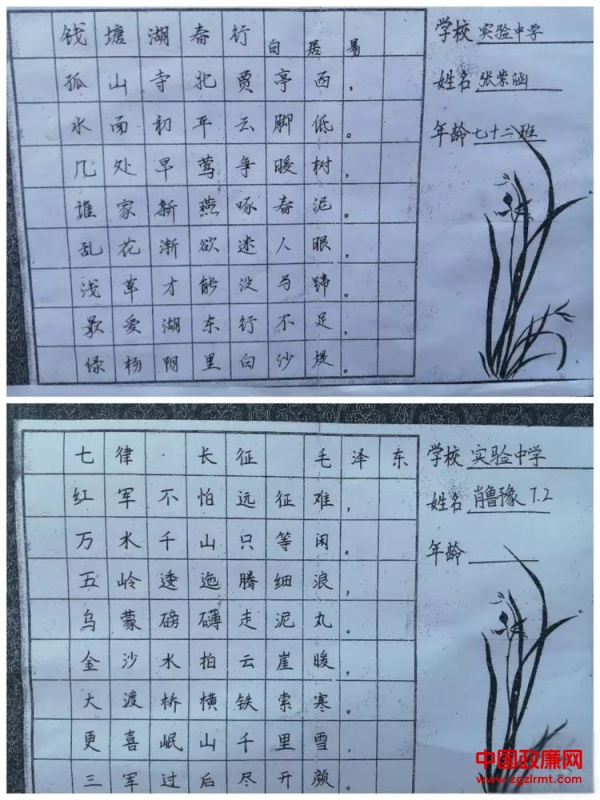 钱塘湖春行 白居易
孤山寺北贾亭西，
水面初平云脚低。
几处早莺争暖树，
谁家新燕啄春泥。
乱花渐欲迷人眼，
浅草才能没马蹄。
最爱湖东行不足，
绿杨阴里白沙堤。
学校 实验中学
姓名 张 涵
年龄 七十二班
七律·长征 毛泽东
红军不怕远征难，
万水千山只等闲。
五岭逶迤腾细浪，
乌蒙磅礴走泥丸。
金沙水拍云崖暖，
大渡桥横铁索寒。
更喜岷山千里雪，
三军过后尽开颜。
学校 实验中学
姓名 肖鲁豫 7.2
年龄
中国政廉网
www.zgzlrmt.com